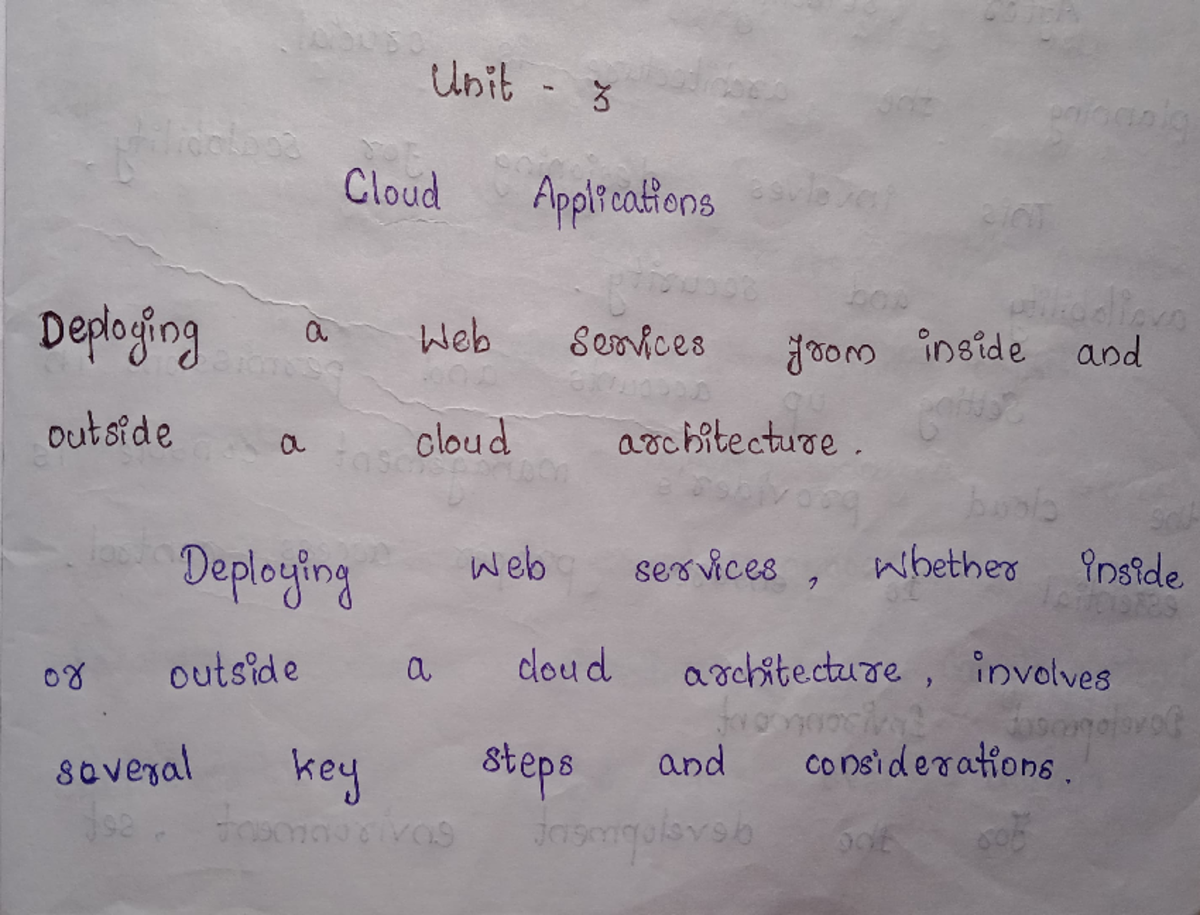 Unit - 3
Cloud Applications
Deploying a Web Services from inside and
outside a cloud architecture.
Deploying Web services, Whether inside
or outside a cloud architecture, involves
several key steps and considerations.